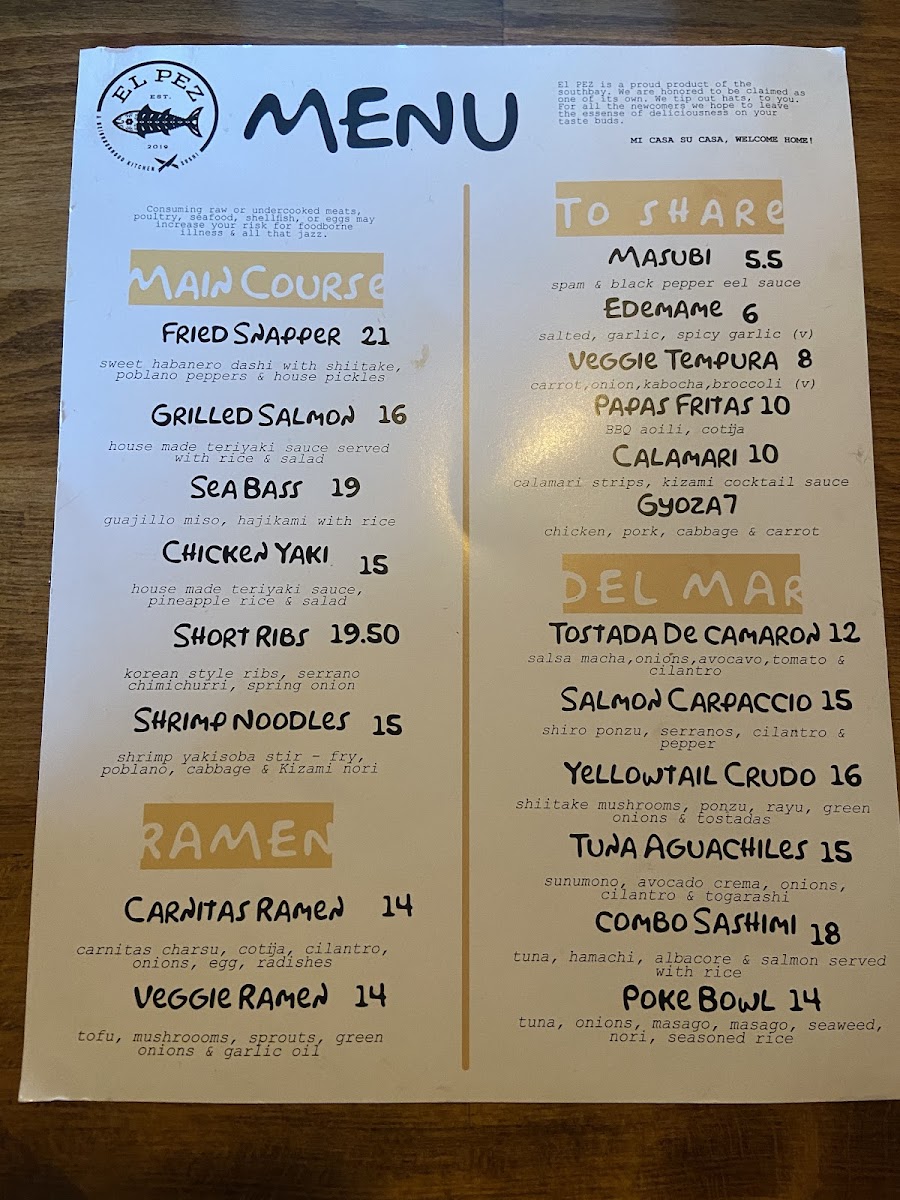 EL PEZ
EST.
2019
A NEIGHBORHOOD KITCHEN & SUSHI
MENU
El PEZ is a proud product of the
southbay. We are honored to be claimed as
one of its own. We tip out hats, to you.
For all the newcomers we hope to leave
the essense of deliciousness on your
taste buds.
MI CASA SU CASA, WELCOME HOME!
Consuming raw or undercooked meats,
poultry, seafood, shellfish, or eggs may
increase your risk for foodborne
illness & all that jazz.
MAIN COURSE
FRIED SNAPPER 21
sweet habanero dashi with shiitake,
poblano peppers & house pickles
GRILLED SALMON 16
house made teriyaki sauce served
with rice & salad
SEA BASS 19
guajillo miso, hajikami with rice
CHICKEN YAKI 15
house made teriyaki sauce,
pineapple rice & salad
SHORT RIBS 19.50
korean style ribs, serrano
chimichurri, spring onion
SHRIMP NOODLES 15
shrimp yakisoba stir - fry,
poblano, cabbage & Kizami nori
RAMEN
CARNITAS RAMEN 14
carnitas charsu, cotija, cilantro,
onions, egg, radishes
VEGGIE RAMEN 14
tofu, mushroooms, sprouts, green
onions & garlic oil
TO SHARE
MASUBI 5.5
spam & black pepper eel sauce
EDEMAME 6
salted, garlic, spicy garlic (v)
VEGGIE TEMPURA 8
carrot,onion,kabocha,broccoli (v)
PAPAS FRITAS 10
BBQ aoili, cotija
CALAMARI 10
calamari strips, kizami cocktail sauce
GYOZA 7
chicken, pork, cabbage & carrot
DEL MAR
TOSTADA DE CAMARON 12
salsa macha,onions,avocavo,tomato &
cilantro
SALMON CARPACCIO 15
shiro ponzu, serranos, cilantro &
pepper
YELLOWTAIL CRUDO 16
shiitake mushrooms, ponzu, rayu, green
onions & tostadas
TUNA AGUACHILES 15
sunumono, avocado crema, onions,
cilantro & togarashi
COMBO SASHIMI 18
tuna, hamachi, albacore & salmon served
with rice
POKE BOWL 14
tuna, onions, masago, masago, seaweed,
nori, seasoned rice